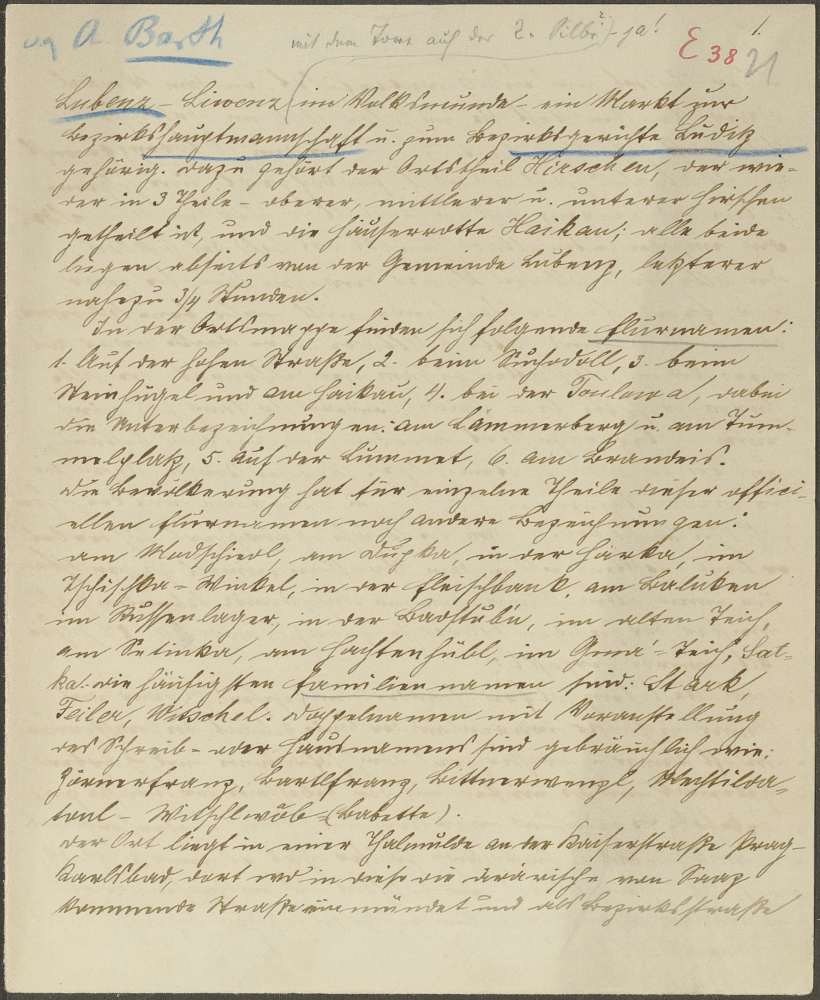 A. Barth
mit dem Tone auf der 2. Silbe? - ja!
E 38
1.
21
Lubenz - Liwenz (im Volksmunde - ein Markt zur
Bezirkshauptmannschaft u. zum Bezirksgerichte Luditz
gehörig. Dazu gehört der Ortstheil Hirschen, der wie-
der in 3 Theile - oberer, mittlerer u. unterer Hirschen
getheilt ist, und die Häuserrotte Haikau; alle beide
liegen abseits von der Gemeinde Lubenz, letzterer
nahezu 3/4 Stunden.
In der Ortsmappe finden sich folgende Flurnamen:
1. Auf der hohen Straße, 2. beim Suchodoll, 3. beim
Steinhügel und am Haikau, 4. bei der Toulawa, dabei
die Unterbezeichnungen: am Lämmerberg u. am Tum-
melplatz, 5. Auf der Lummet, 6. Am Brandeis.
Die Bevölkerung hat für einzelne Theile dieser offici-
ellen Flurnamen noch andere Bezeichnungen:
am Modschiedl, am Dupka, in der Harka, im
Tschischka-Winkel, in der Fleischbank, am Baluken
im Russenlager, in der Badstub'n, im alten Teich,
am Setinka, am Hachtenhübl, im Gmá-Teich, Sat-
ka. Die häufigsten Familiennamen sind: Stark,
Feiler, Witschel. Doppelnamen mit Voranstellung
des Schreib- oder Hausnamens sind gebräuchlich wie:
Hörnerfranz, Bartlfranz, Bittnerwenzl, Mechtilda-
tonl - Witschlwób (Babette).
Der Ort liegt in einer Thalmulde an der Kaiserstraße Prag-
Karlsbad, dort wo in diese die ärarische von Saaz
kommende Straße einmündet und als Bezirksstraße